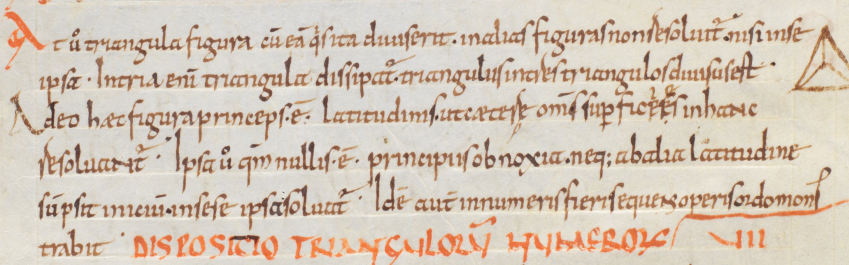 At ũ triangula figura cũ eã q̃sita diuiserit. in alias figuras non resoluit̃. nisi in se
ipsã. In tria enĩ triangula dissipat̃. triangulus in tres triangulos diuisus est.
Adeo hæc figura princeps. ẽ. latitudinis. ut cæteræ om̃s sup̃ficies in hanc
resoluant̃. Ipsa ũ qm̃ nullis. ẽ. principiis obnoxia. neq; ab alia latitudine
sũpsit iniciũ. in sese ipsa soluat̃. Idẽ aut̃ in numeris fieri sequens operis ordo monˢ
trabit. DISPOSITIO TRIANGULORŨ NUMEROR̃ VIII